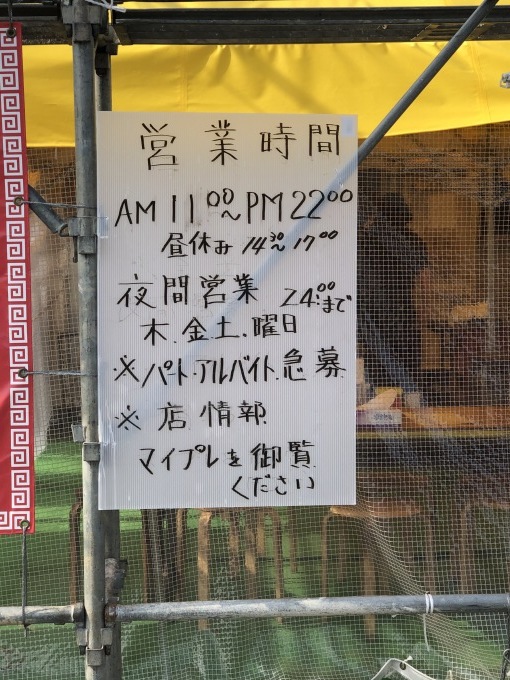 営業時間
AM 11⁰⁰~PM 22⁰⁰
昼休み 14³⁰~17⁰⁰
夜間営業 24:⁰⁰まで
木.金土.曜日
※パート.アルバイト.急募
※店情報
マイプレを御覧
ください